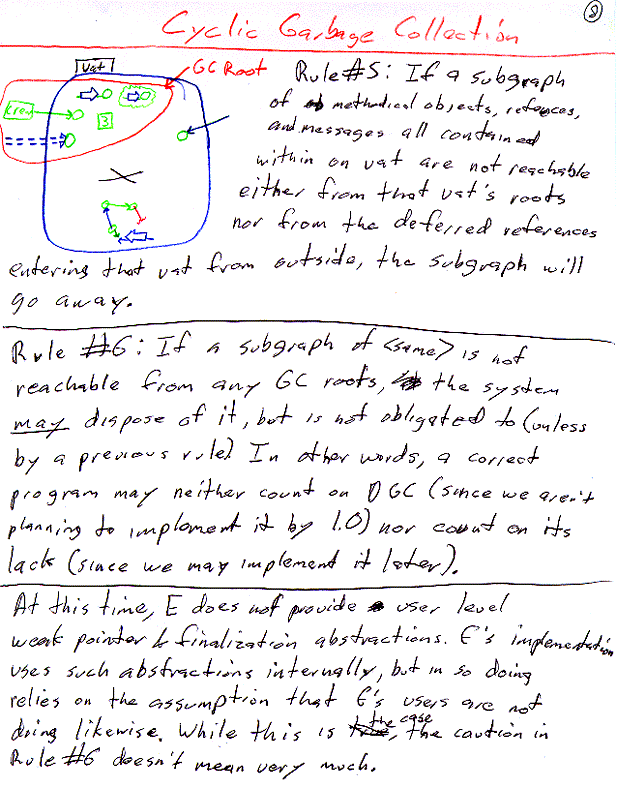 8
Cyclic Garbage Collection
Vat
GC Root
3
Rule #5: If a subgraph
of methodical objects, references,
and messages all contained
within on vat are not reachable
either from that vat's roots
nor from the deferred references
entering that vat from outside, the subgraph will
go away.
Rule #6: If a subgraph of <same> is not
reachable from any GC roots, the system
may dispose of it, but is not obligated to (unless
by a previous rule) In other words, a correct
program may neither count on DGC (since we aren't
planning to implement it by 1.0) nor count on its
lack (since we may implement it later).
At this time, E does not provide user level
weak pointer & finalization abstractions. E's implementation
uses such abstractions internally, but in so doing
relies on the assumption that E's users are not
doing likewise. While this is the case, the caution in
Rule #6 doesn't mean very much.